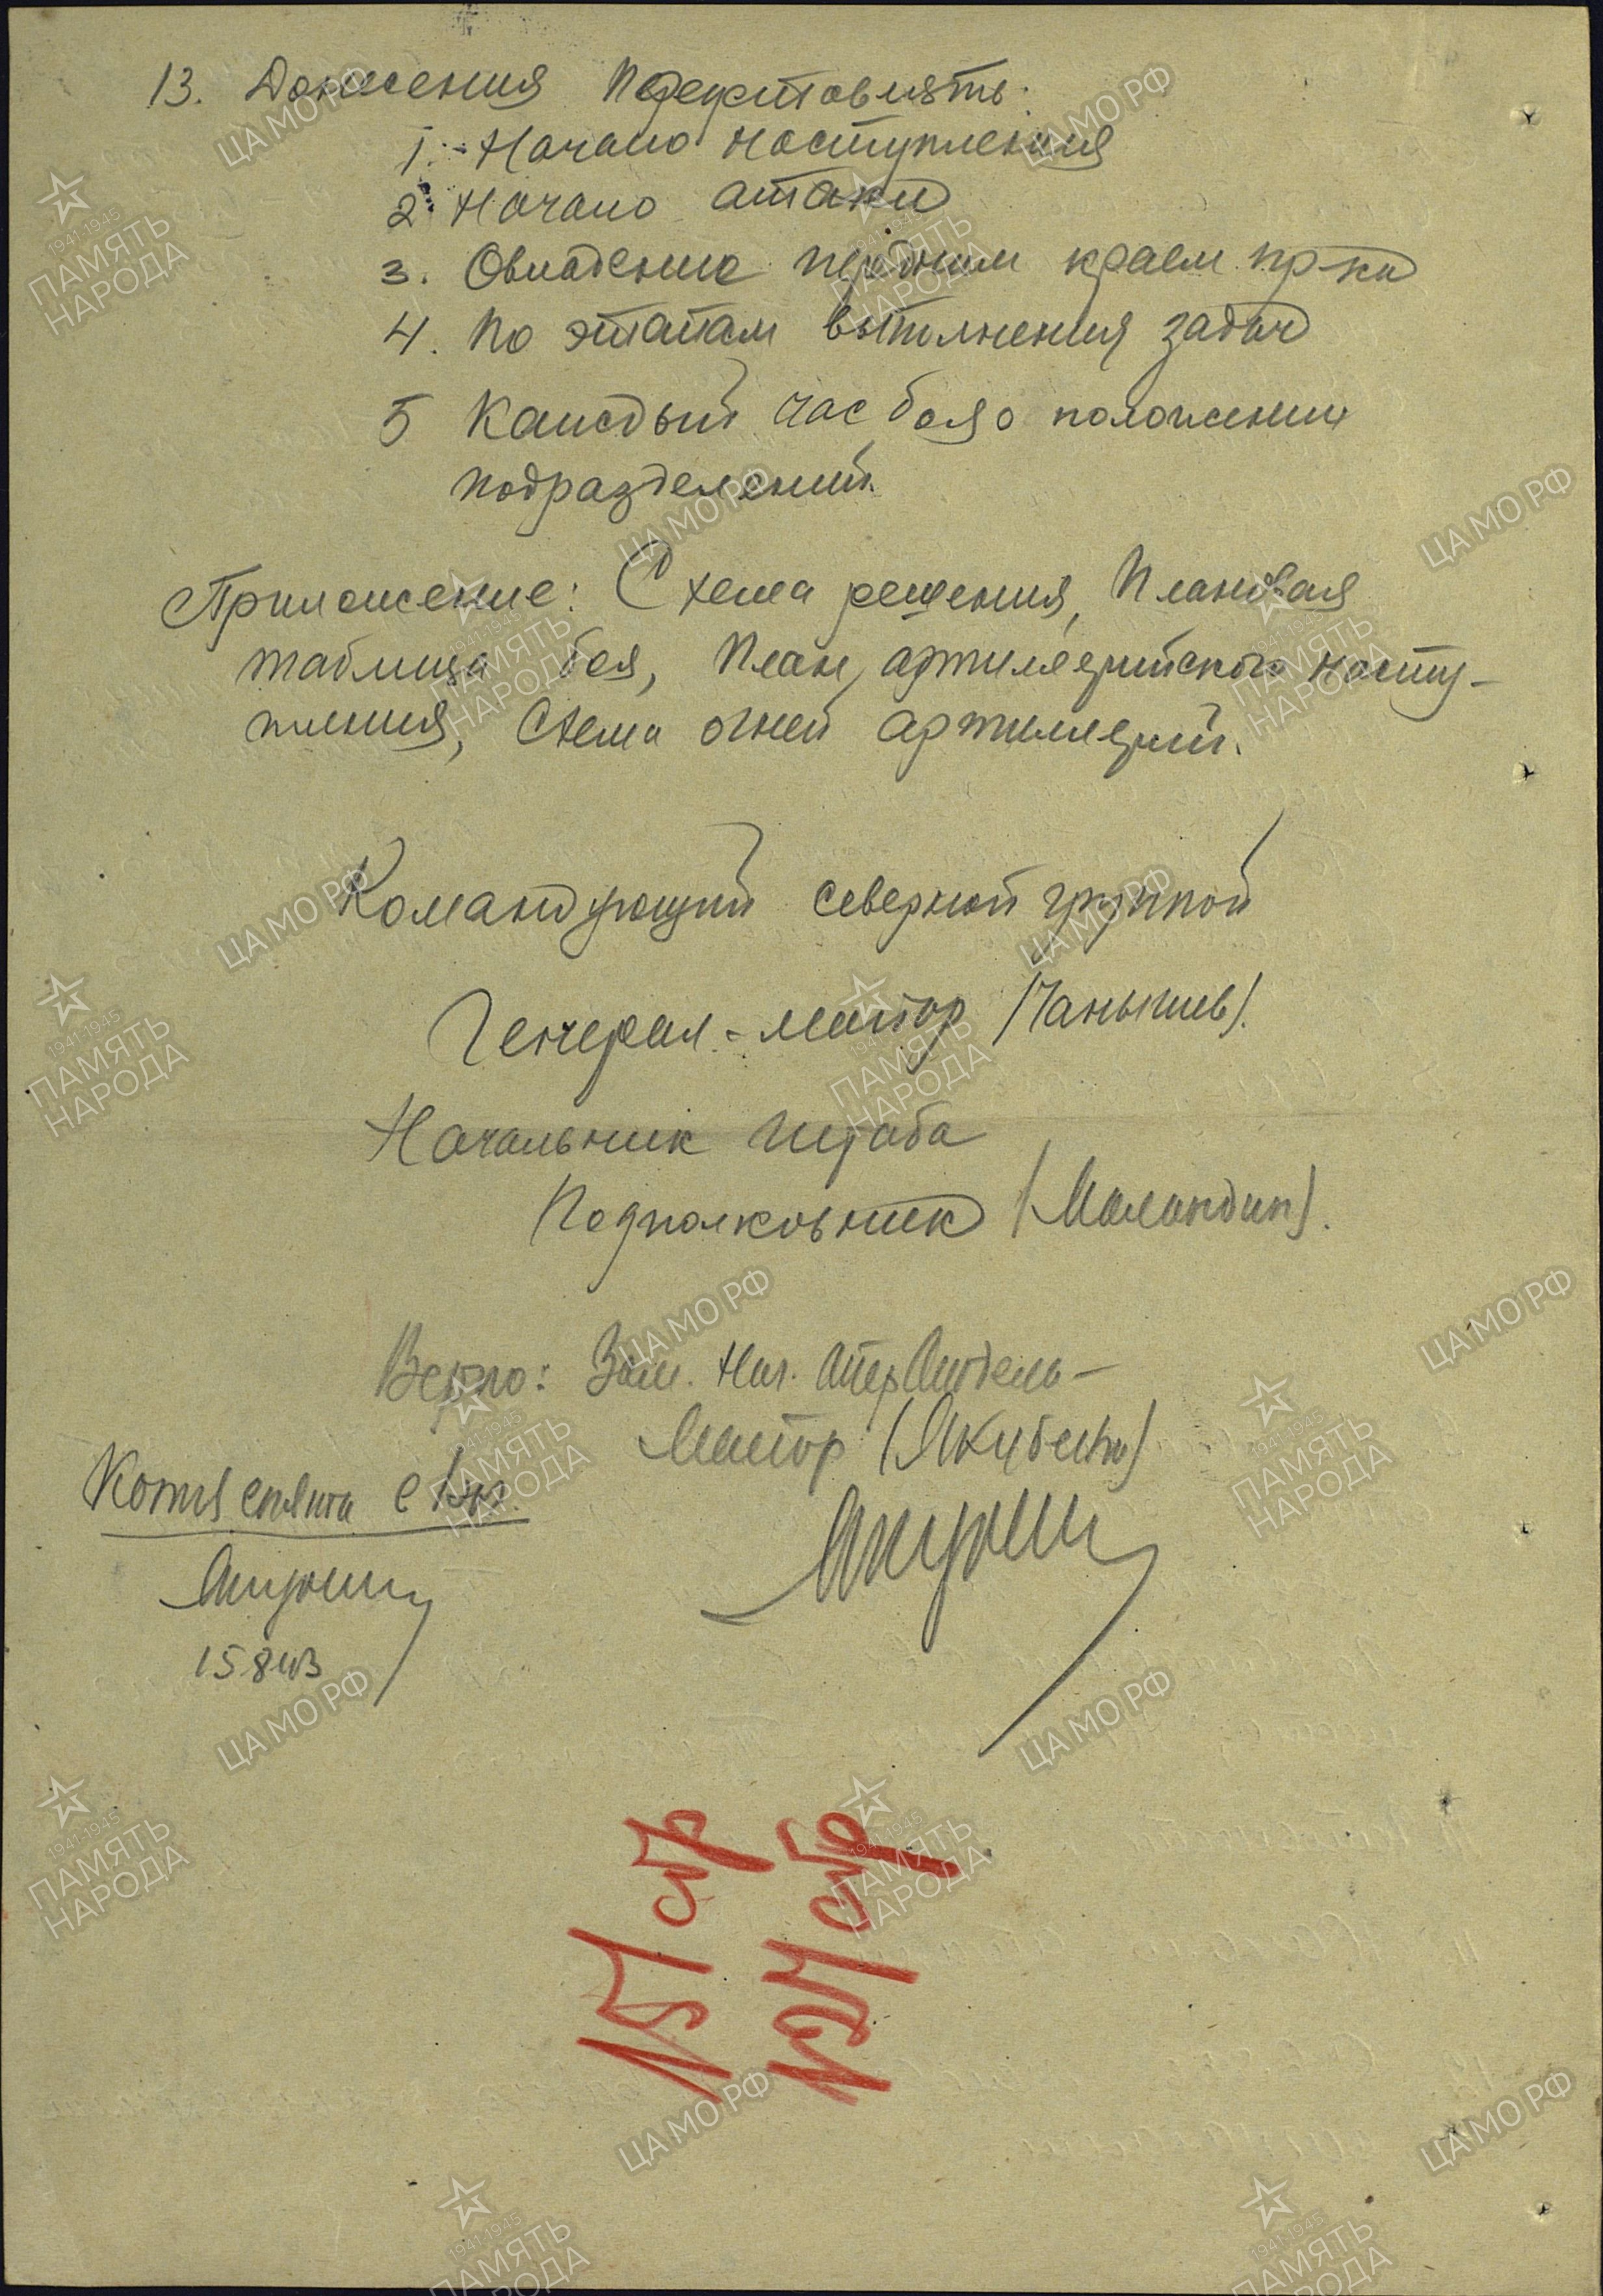 13. Донесения Представлять:
1. Начало наступления
2. Начало атаки
3. Овладение передним краем пр-ка
4. По этапам выполнения задач
5 Каждый час боя о положении
подразделений.
Приложение: Схема решения, Плановая
таблица боя, План артиллерийского насту-
пления, Схема огней артиллерии.
Командующий северной группой
Генерал-майор (Чанышев).
Начальник штаба
Подполковник (Маландин).
Верно: Зам. Нач.
Майор
Копия снята с
15 8 43
стр
стр
ЦАМО РФ
1941-1945
ПАМЯТЬ
НАРОДА